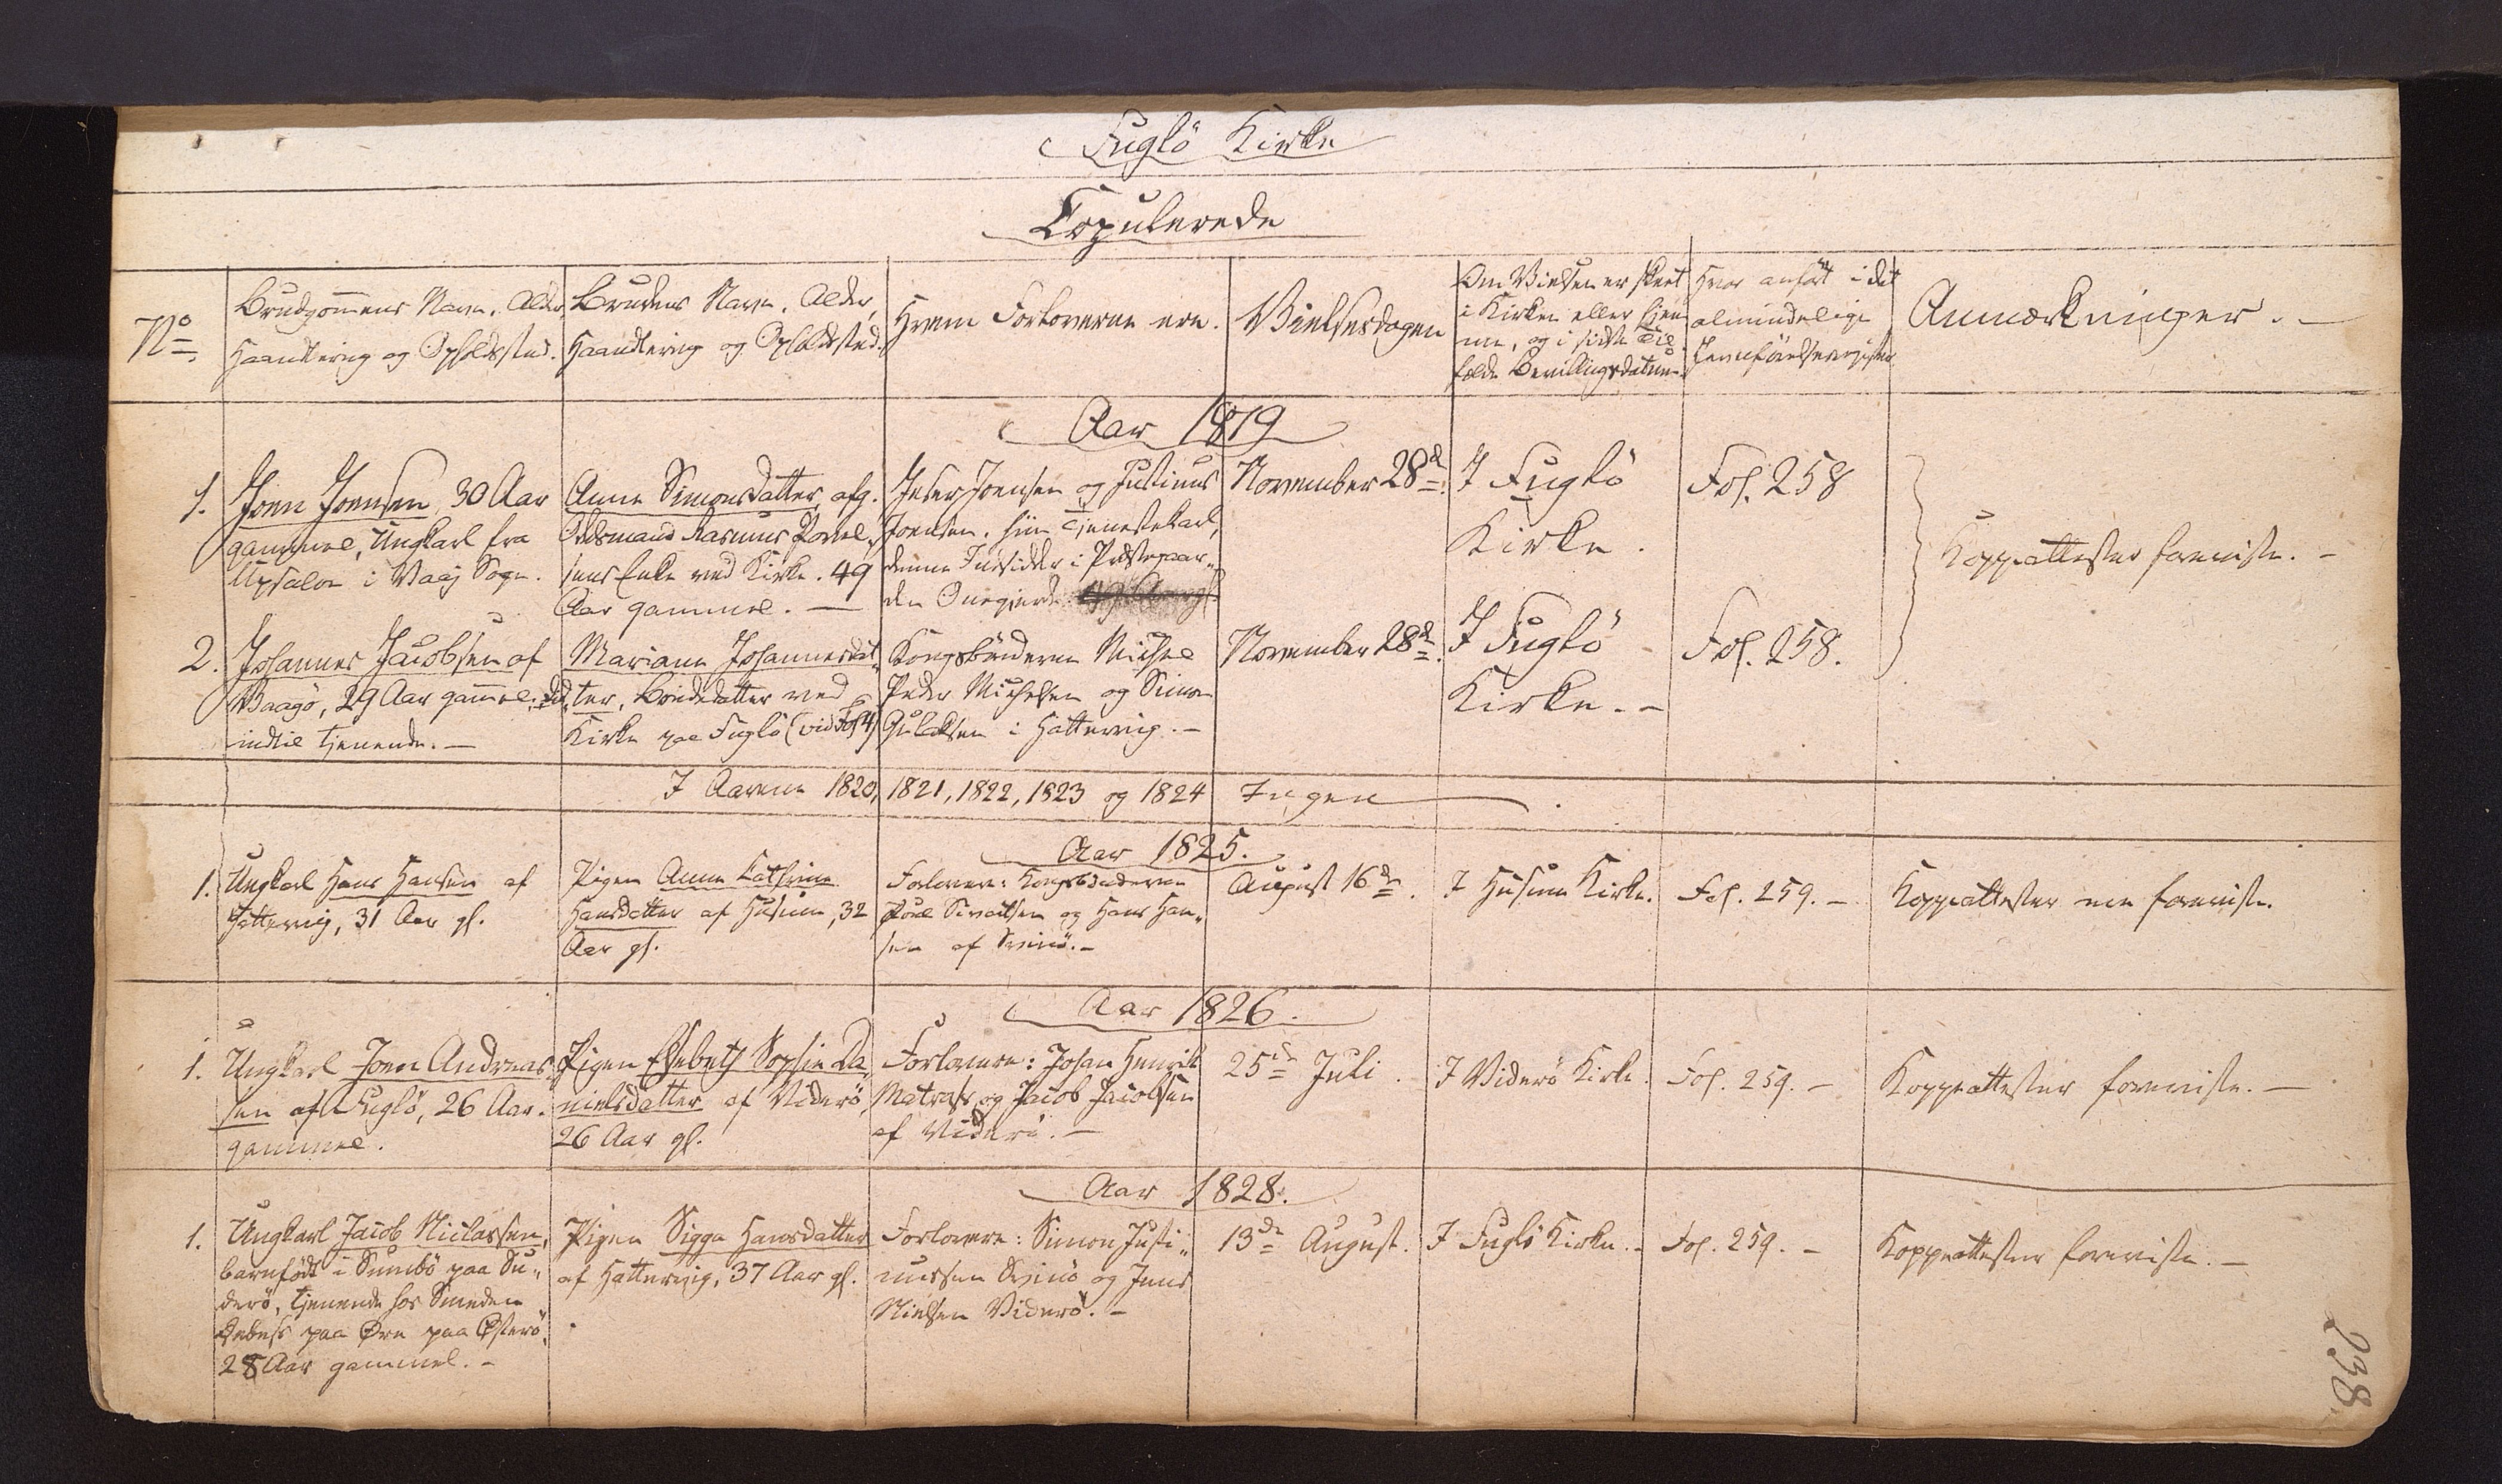 Fuglö Kirke
Copulerede
No
Brudgommens Navn, Alder,
Haandtering og Opholdssted.
Brudens Navn, Alder,
Haandtering og Opholdssted.
Hvem Forloverne ere.
Vielsesdagen
Om Vielsen er skeet
i Kirken eller Hjem
me, og i sidste Til
fælde Bevillingsdatum
Hvor anført i det
almindelige
Jevnførelsesregister
Anmærkninger. -
Aar 1819
1.
Joen Joensen 30 Aar
gammel, Ungkarl fra
i Vaaj Sogn.
Anne Simonsdatter, afg.
Odelsmand Rasmus Povel-
sens Enke ved Kirke. 49
Aar gammel. -
Joensen og Justinus
Joensen, hiin Tjenestekarl,
denne Indsidder i Præstegaar-
den Onegjerde
November 28de
I Fuglö
Kirke.
Fol. 258
Koppeattester foreviste. -
2.
Johannes Jacobsen af
Vaagö, 29 Aar gammel,
indtil tjenende. -
Mariane Johannesdat-
ter, Bondedatter ved
Kirke paa Fuglö (vid Fol 4)
Kongsbönderne Michel
Peder Michelsen og Simon
i Hattervig. -
November 28de
I Fuglö
Kirke. -
Fol. 258.
I Aarene 1820, 1821, 1822, 1823 og 1824 Ingen
Aar 1825.
1.
Ungkarl Hans Hansen af
Hattervig, 31 Aar gl.
Pigen Anne Cathrine
Hansdatter af Husum, 32
Aar gl.
Forlovere: Kongsbönderne
Poul Sivertsen og Hans Han-
sen af Svinö. -
August 16de.
I Husum Kirke.
Fol. 259. -
Koppeattester ere foreviste.
Aar 1826.
1.
Ungkarl Joen Andreas-
sen af Fuglö, 26 Aar
gammel.
Pigen Elsebeth Sophie Da-
nielsdatter af Viderö,
26 Aar gl.
Forlovere: Johan Henrik
Matras og Jacob Jacobsen
af Viderö. -
25de Juli.
I Viderö Kirke.
Fol. 259. -
Koppeattester foreviste. -
Aar 1828.
1.
Ungkarl Jacob Niclassen,
barnfödt i Sumbö paa Su-
derö, tjenende hos Smeden
Debess paa Öre paa Østerö,
28 Aar gammel. -
Pigen Sigga Hansdatter
af Hattervig, 37 Aar gl.
Forlovere: Simon Justi-
nussen Svinö og Jens
Nielsen Viderö. -
13de August.
I Fuglö Kirke. -
Fol. 259. -
Koppeattester foreviste. -
238